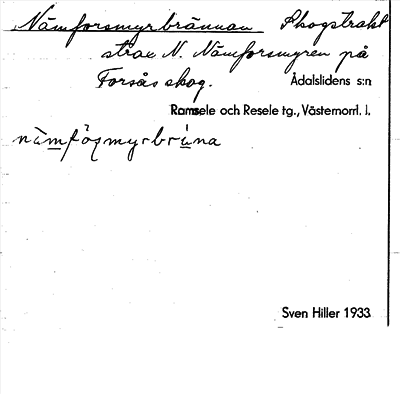 Nämforsmyrbrännan Skogstrakt
strax N. Nämforsmyren på
Forsås skog. Ådalslidens s:n
Ramsele och Resele tg., Västernorrl. l.
Sven Hiller 1933